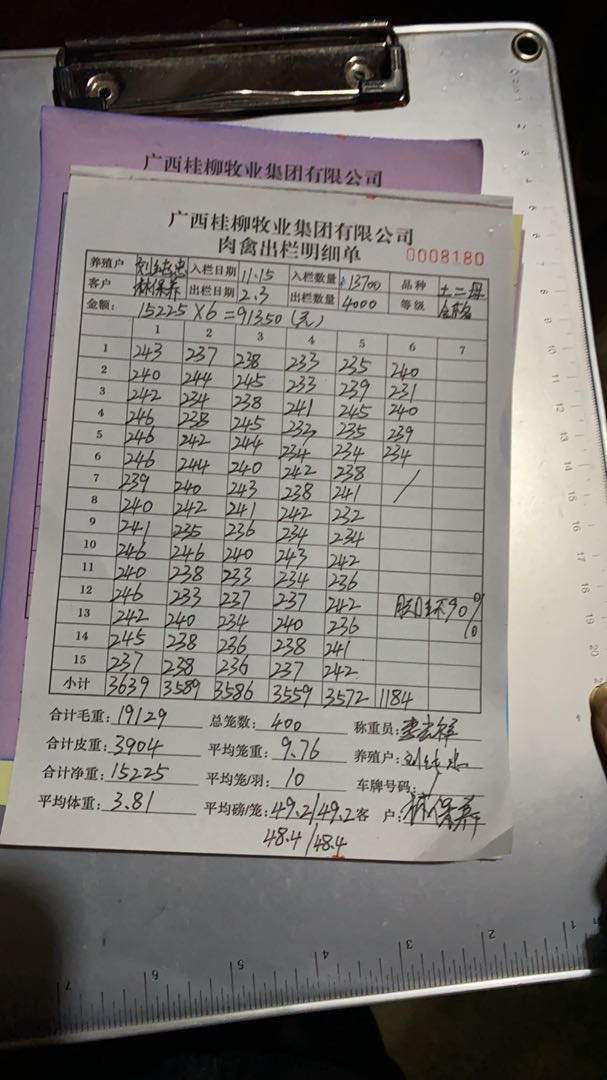 广西桂柳牧业集团有限公司
广西桂柳牧业集团有限公司
肉禽出栏明细单
0008180
养殖户 刘纯忠 入栏日期 11.15 入栏数量 13700 品种 土二母
客户 林保养 出栏日期 2.3 出栏数量 4000 等级 合格
金额: 15225×6=91350(元)
1 2 3 4 5 6 7
1 243 237 238 233 235 240
2 240 244 245 233 239 231
3 242 234 238 241 245 240
4 246 238 245 232 235 239
5 246 242 244 234 234 234
6 246 244 240 242 238 /
7 239 240 243 238 241
8 240 242 241 242 232
9 241 235 236 234 234
10 246 246 240 243 242
11 240 238 233 234 236
12 246 233 237 237 242 90%
13 242 240 234 240 236
14 245 238 236 238 241
15 237 238 236 237 242
小计 3639 3589 3586 3559 3572 1184
合计毛重: 19129 总笼数: 400 称重员:
合计皮重: 3904 平均笼重: 9.76 养殖户: 刘纯忠
合计净重: 15225 平均笼/羽: 10 车牌号码: /
平均体重: 3.81 平均磅/笼: 49.2/49.2 客户: 林保养
48.4/48.4